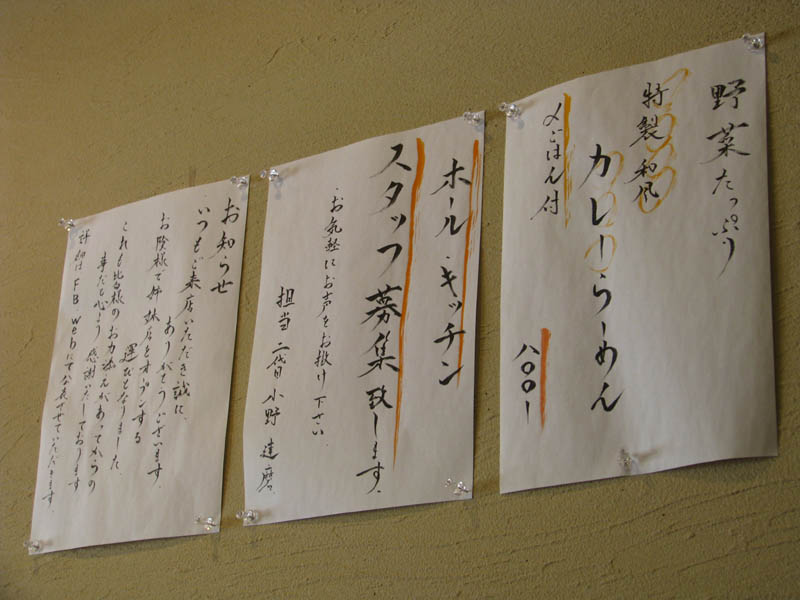 野菜たっぷり
特製 和風
カレーらーめん
〆ごはん付
八〇〇ー
ホール・キッチン
スタッフ募集致します。
お気軽にお声をお掛け下さい。
担当 二代目 小野 達磨
お知らせ
いつもご来店いただき誠に、
ありがとうございます。
お陰様で姉妹店をオープンする
運びとなりました。
これも皆様のお力添えがあってからの
事だと心より感謝いたしております
詳細はFB webにて公表させていただきます。